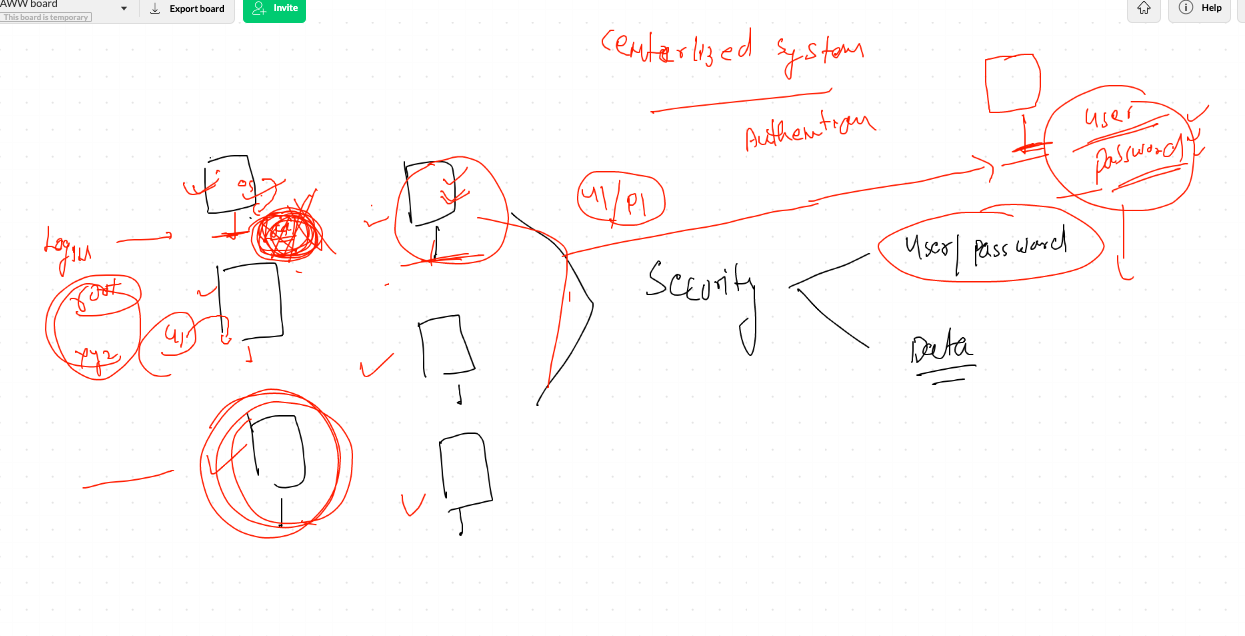 AWW board
This board is temporary
Export board
Invite
Help
Centerlized system
Authention
user
password
OS
u1/p1
Login
root
xyz
u1
Security
user/password
Data